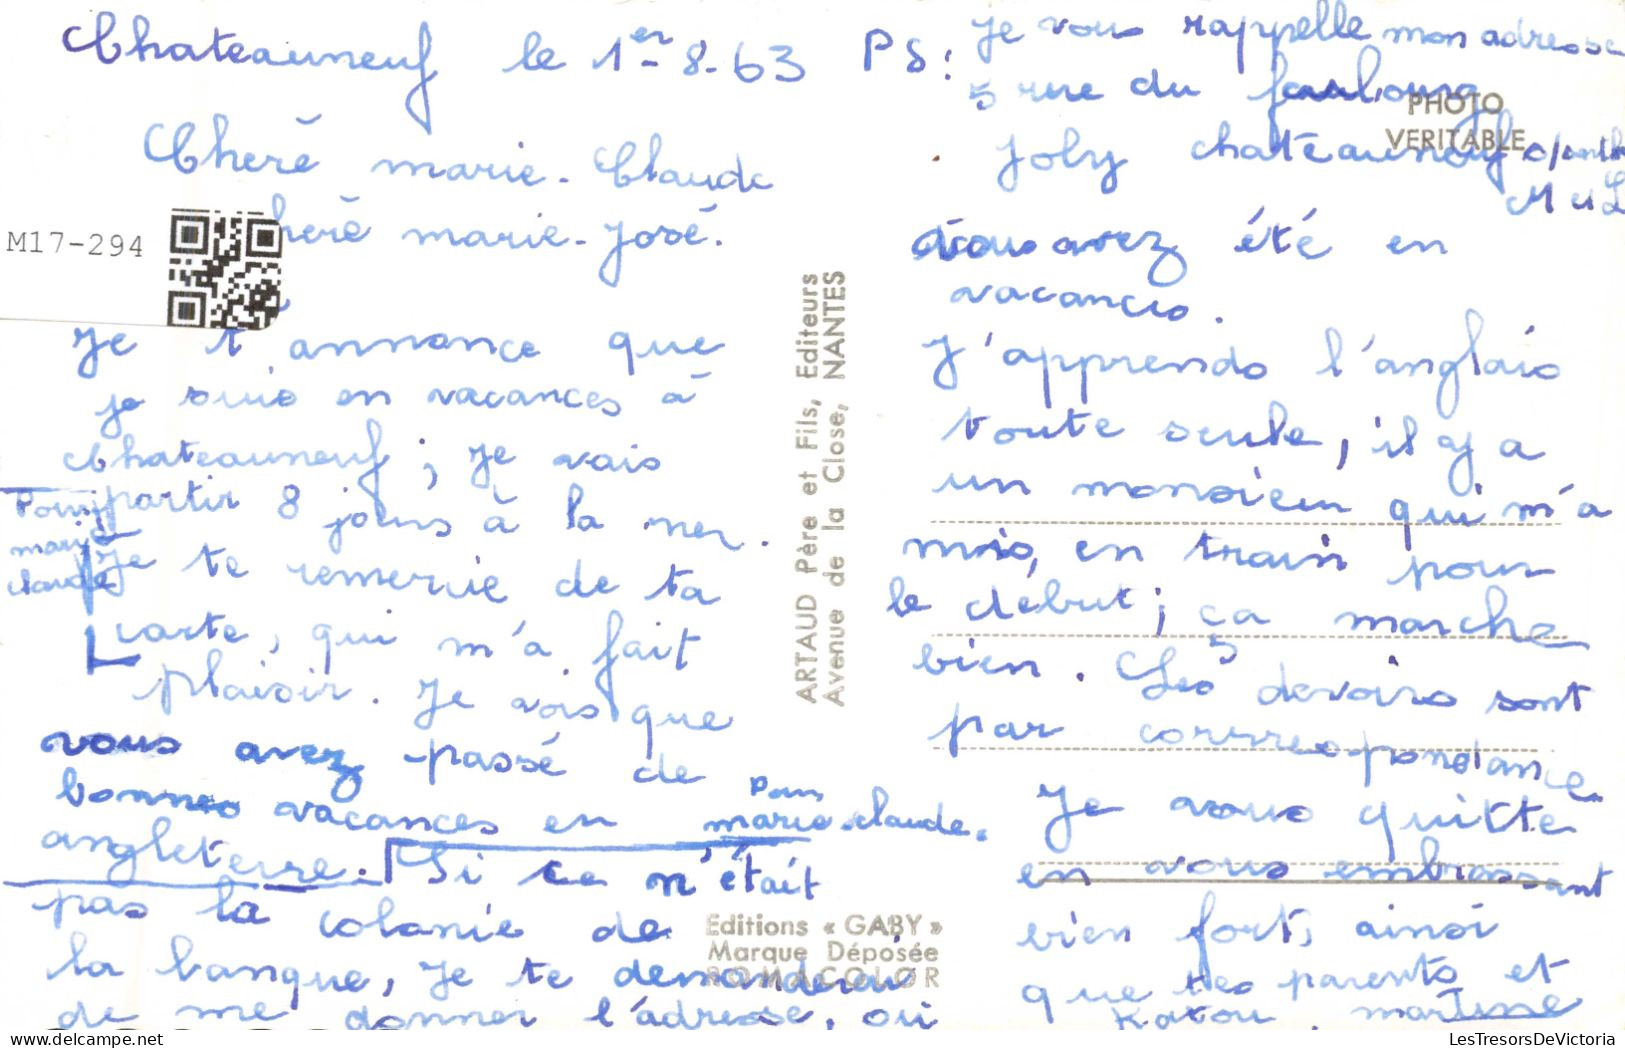 Chateauneuf le 1er-8-63
Cheré marie-Claude
heré marie-José.
M17-294
Je t'annonce que
je suis en vacances à
Chateauneuf ; Je vais
partir 8 jours à la mer.
Pour
marie
claude
Je te remercie de ta
carte, qui m'a fait
plaisir. Je vois que
vous avez passé de
bonnes vacances en
angleterre. Si ce n'était
Pour
marie-claude.
pas la colonie de
la banque, Je te demanderai
de me donner l'adresse, où
ARTAUD Père et Fils, Editeurs
Avenue de la Close, NANTES
Editions « GABY »
Marque Déposée
ROMACOLOR
PS : Je vous rappelle mon adresse
5 rue du faubourg
PHOTO
VERITABLE
Joly chateauneuf s/sarthe
M et L
vous avez été en
vacances.
J'apprends l'anglais
toute seule, il y a
un monsieur qui m'a
mis, en train pour
le début ; ça marche
bien. Les 5 devoirs sont
par correspondance
Je vous quitte
en vous embrassant
bien fort, ainsi
que tes parents et
Katou. martine
LesTresorsDeVictoria